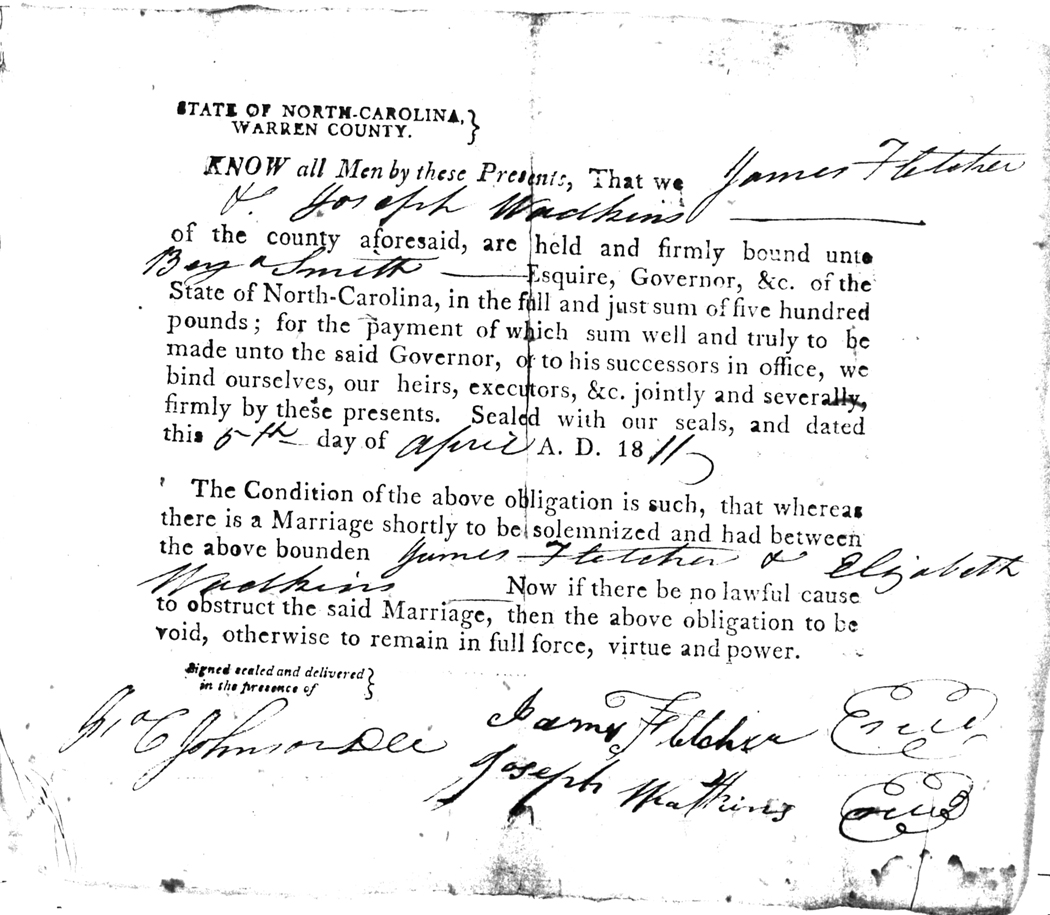 STATE OF NORTH-CAROLINA, }
WARREN COUNTY.
KNOW all Men by these Presents, That we James Fletcher
&. Joseph Wadkins
of the county aforesaid, are held and firmly bound unto
Benja Smith Esquire, Governor, &c. of the
State of North-Carolina, in the full and just sum of five hundred
pounds; for the payment of which sum well and truly to be
made unto the said Governor, or to his successors in office, we
bind ourselves, our heirs, executors, &c. jointly and severally,
firmly by these presents. Sealed with our seals, and dated
this 5th day of april A. D. 1811
The Condition of the above obligation is such, that whereas
there is a Marriage shortly to be solemnized and had between
the above bounden James Fletcher & Elizabeth
Wadkins Now if there be no lawful cause
to obstruct the said Marriage, then the above obligation to be
void, otherwise to remain in full force, virtue and power.
Signed sealed and delivered }
in the presence of
C Johnson James Fletcher Seal
Joseph Watkins Seal